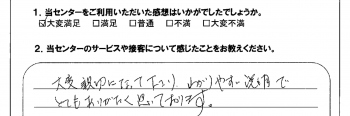 1. 当センターをご利用いただいた感想はいかがでしたでしょうか。
☑大変満足 □満足 □普通 □不満 □大変不満
2. 当センターのサービスや接客について感じたことをお教えください。
大変親切になって下さり わかりやすい説明で
とてもありがたく思っております。